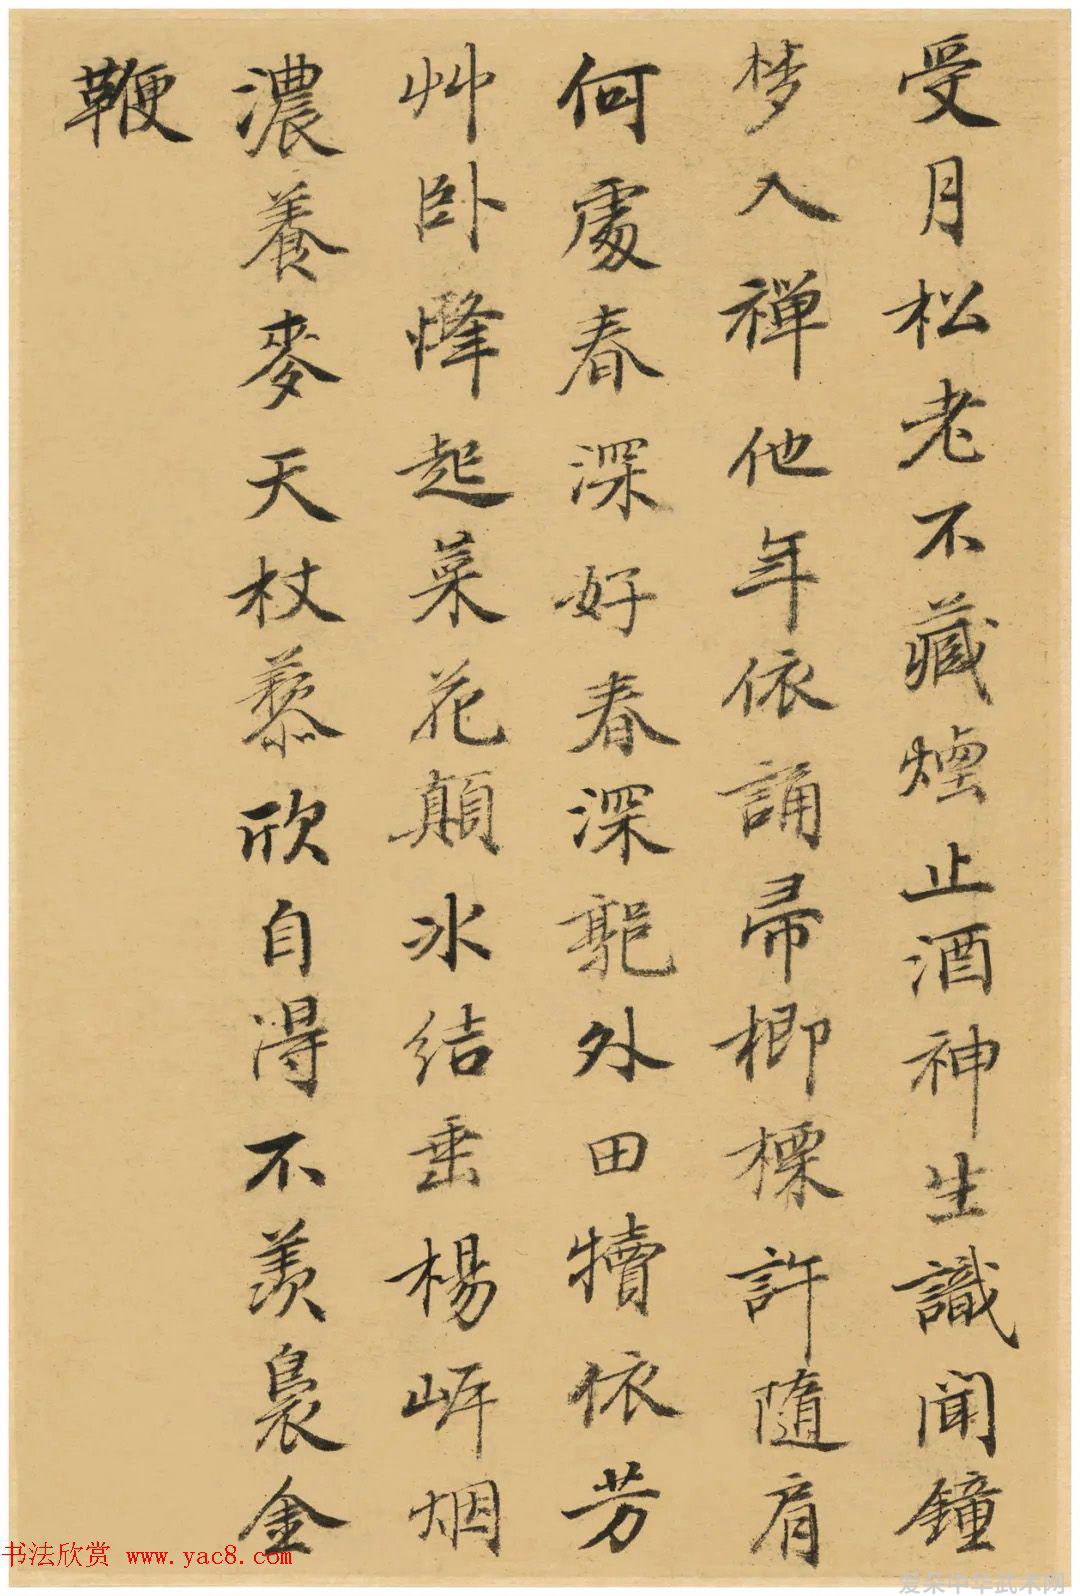 受月松老不藏煙止酒神生識聞鐘
梦入禅他年依誦帚楖㮚許隨肩
何處春深好春深郭外田犢依芳
艸卧熢起菜花顛冰结垂楊岍烟
濃養麥天杖藜欣自淂不羡裊金
鞭
书法欣赏 www.yac8.com
爱荣中华武术网